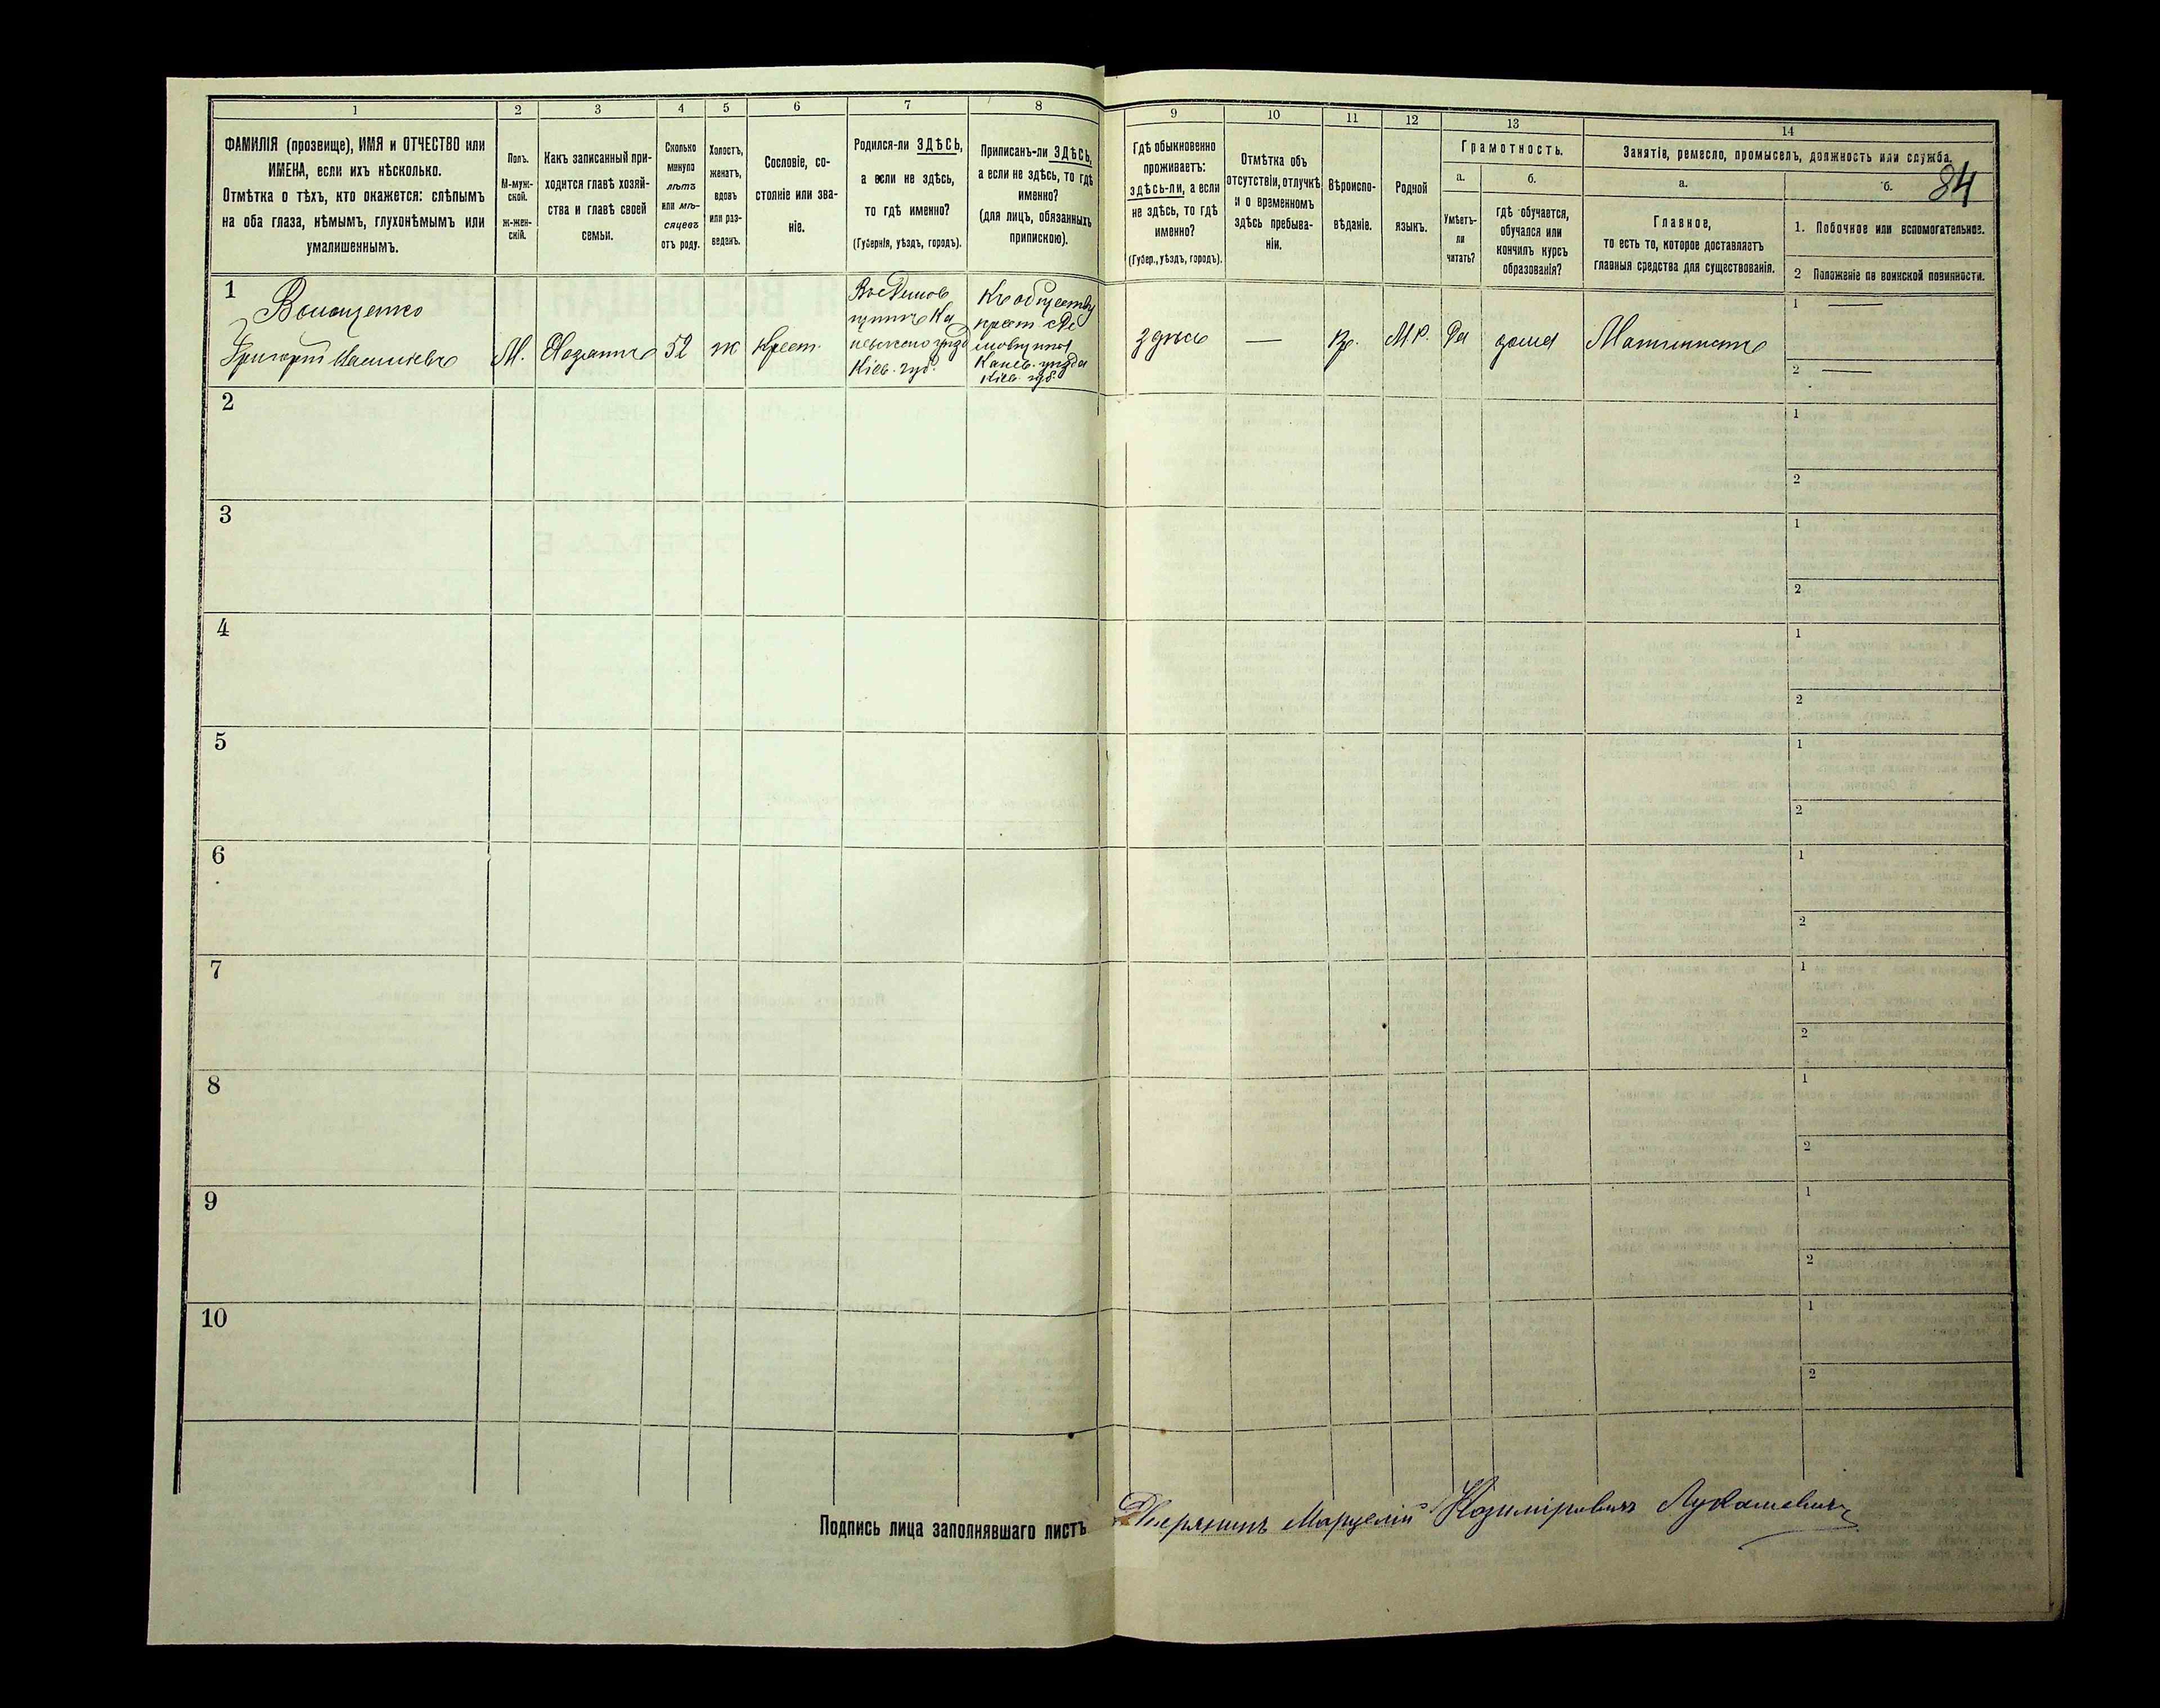 1
2
3
4
5
6
7
8
9
10
11
12
13
14
84
ФАМИЛІЯ (прозвище), ИМЯ и ОТЧЕСТВО или
ИМЕНА, если ихъ нѣсколько.
Отмѣтка о тѣхъ, кто окажется: слѣпымъ
на оба глаза, нѣмымъ, глухонѣмымъ или
умалишеннымъ.
Полъ.
М-муж-
ской.
Ж-жен-
скій.
Какъ записанный при-
ходится главѣ хозяй-
ства и главѣ своей
семьи.
Сколько
минуло
лѣтъ
или мѣ-
сяцевъ
отъ роду.
Холостъ,
женатъ,
вдовъ
или раз-
веденъ.
Сословіе, со-
стояніе или зва-
ніе.
Родился-ли ЗДѢСЬ,
а если не здѣсь,
то гдѣ именно?
(Губернія, уѣздъ, городъ).
Приписанъ-ли ЗДѢСЬ,
а если не здѣсь, то гдѣ
именно?
(для лицъ, обязанныхъ
припискою).
Гдѣ обыкновенно
проживаетъ:
здѣсь-ли, а если
не здѣсь, то гдѣ
именно?
(Губер., уѣздъ, городъ).
Отмѣтка объ
отсутствіи, отлучкѣ
и о временномъ
здѣсь пребыва-
ніи.
Вѣроиспо-
вѣданіе.
Родной
языкъ.
Грамотность.
а.
б.
Умѣетъ-
ли
читать?
гдѣ обучается,
обучался или
кончилъ курсъ
образованія?
Занятіе, ремесло, промыселъ, должность или служба.
а.
б.
Главное,
то есть то, которое доставляетъ
главныя средства для существованія.
1. Побочное или вспомогательное.
2 Положеніе по воинской повинности.
1
Григорій
М.
52
ж
Крест.
Кіев. губ.
Къ обществу
крест.
Канев. уѣзда
Кіев. губ.
здѣсь
—
Пр.
М.Р.
Да
дома
Машинистъ
1 —
2 —
2
1
2
3
1
2
4
1
2
5
1
2
6
1
2
7
1
2
8
1
2
9
1
2
10
1
2
Подпись лица заполнявшаго листъ
Дворянинъ Марцелій Казиміровичъ Лукашевичъ